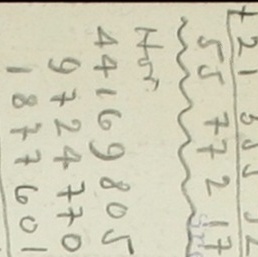 21
55 772 17
44169805
9724770
1877601